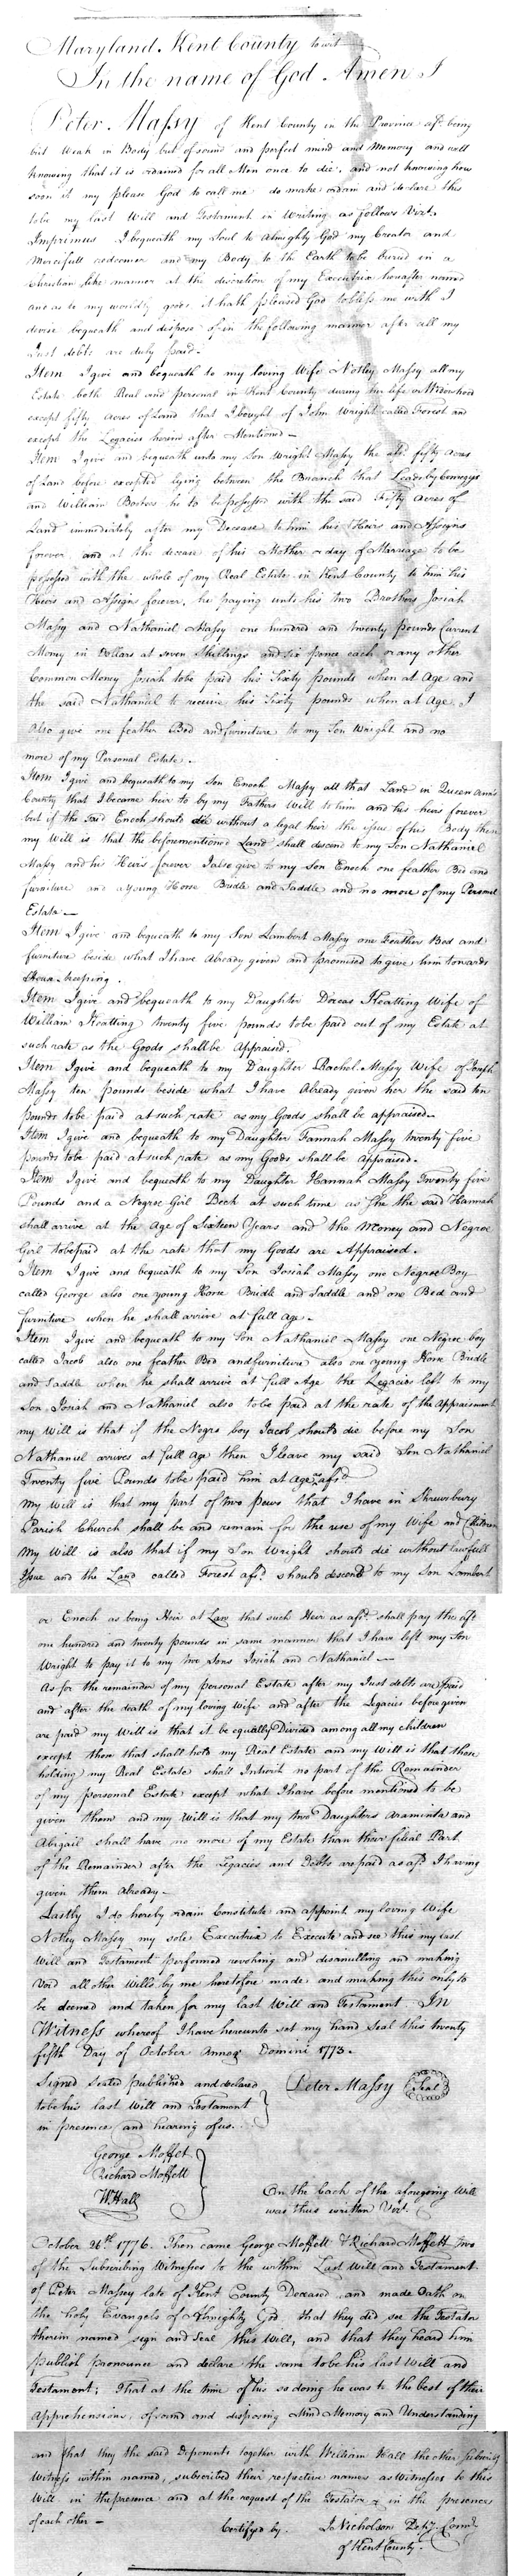 Maryland. Kent County to wit
In the name of God. Amen I
Peter. Massy of Kent County in the Province afd. being
but Weak in Body but of sound and perfect mind and Memory and well
knowing that it is ordained for all Men once to die, and not knowing how
soon it may please God to call me do make ordain and declare this
to be my last Will and Testament in Writing as follows Vizt.
Imprimus I bequeath my Soul to Almighty God my Creator and
Mercifull redeemer and my Body to the Earth to be buried in a
Christian like manner at the discretion of my Executrix hereafter named
and as to my worldly goods it hath pleased God to bless me with I
devise bequeath and dispose of in the following manner after all my
Just debts are duly paid.
Item I give and bequeath to my loving Wife Notley Massy all my
Estate both Real and personal in Kent County during her life or Widowhood
except fifty acres of Land that I bought of John Wright called Forest and
except the Legacies herein after Mentioned —
Item I give and bequeath unto my Son Wright Massy the afd. fifty acres
of Land before excepted lying between the Branch that Leads by
and William he to be possessed with the said fifty acres of
Land immediately after my Decease to him his Heirs and Assigns
forever, and at the decease of his Mother or day of Marriage to be
possessed with the whole of my Real Estate in Kent County to him his
Heirs and Assigns forever, he paying unto his two Brothers Josiah
Massy and Nathaniel Massy one hundred and twenty pounds Current
Money in Dollars at seven Shillings and six pence each or any other
Common Money Josiah to be paid his Sixty pounds when at Age and
the said Nathaniel to receive his Sixty pounds when at Age, I
Also give one feather Bed and furniture to my Son Wright and no
more of my Personal Estate.
Item I give and bequeath to my Son Enoch Massy all that Land in Queen Ann's
County that I became heir to by my Fathers Will to him and his heirs forever
but if the said Enoch should die without a legal heir the issue of his Body then
my Will is that the beforementioned Land shall descend to my Son Nathaniel
Massy and his Heirs forever I also give to my Son Enoch one feather Bed and
furniture and a young Horse Bridle and Saddle and no more of my Personal
Estate —
Item I give and bequeath to my Son Lambert Massy one Feather Bed and
furniture beside what I have Already given and promised to give him towards
House keeping.
Item I give and bequeath to my Daughter Dorcas Keatting Wife of
William Keatting twenty five pounds to be paid out of my Estate at
such rate as the Goods shall be Appraised.
Item I give and bequeath to my Daughter Rachel Massy Wife of Joseph
Massy ten pounds beside what I have Already given her the said ten
pounds to be paid at such rate as my Goods shall be appraised —
Item I give and bequeath to my Daughter Fannah Massy twenty five
pounds to be paid at such rate as my Goods shall be Appraised.
Item I give and bequeath to my Daughter Hannah Massy Twenty five
Pounds and a Negroe Girl Beck at such time as She the said Hannah
shall arrive at the Age of Sixteen Years and the Money and Negroe
Girl to be paid at the rate that my Goods are Appraised.
Item I give and bequeath to my Son Josiah Massy one Negroe Boy
called George also one young Horse Bridle and Saddle and one Bed and
furniture when he shall arrive at full age.
Item I give and bequeath to my Son Nathaniel Massy one Negroe boy
called Jacob also one feather Bed and furniture also one young Horse Bridle
and Saddle when he shall arrive at full Age the Legacies left to my
Son Josiah and Nathaniel also to be paid at the rate of the Appraisment
my Will is that if the Negro boy Jacob should die before my Son
Nathaniel arrives at full age then I leave my said Son Nathaniel
Twenty five Pounds to be paid him at Age as afsd.
My Will is that my part of two pews that I have in Shrewsbury
Parish Church shall be and remain for the use of my Wife and Children
My Will is also that if my Son Wright should die without lawfull
Issue and the Land called Forest afd. should descend to my Son Lambert
or Enoch as being Heir at Law that such Heir as afd. shall pay the afd.
one hundred and twenty pounds in same manner that I have left my Son
Wright to pay it to my two Sons Josiah and Nathaniel —
As for the remainder of my personal Estate after my Just debts are paid
and after the death of my loving Wife and after the Legacies before given
are paid my Will is that it be equally Divided among all my children
except those that shall hold my Real Estate and my Will is that those
holding my Real Estate shall Inherit no part of the Remainder
of my personal Estate except what I have before mentioned to be
given them and my Will is that my two Daughters Araminta and
Abigail shall have no more of my Estate than their filial Part
of the Remainder after the Legacies and Debts are paid as afd. I having
given them Already —
Lastly I do hereby ordain Constitute and appoint my loving Wife
Notley Massy my sole Executrix to Execute and see this my last
Will and Testament performed revoking and disanulling and making
Void all other Wills by me heretofore made and making this only to
be deemed and taken for my last Will and Testament. In
Witness whereof I have hereunto set my hand Seal this twenty
fifth Day of October Annoq Domini 1773.
Signed Sealed published and declared
to be his last Will and Testament
in presence and hearing of us.
Peter Massy Seal
George Moffet
Richard Moffett
W. Hall
On the back of the aforegoing Will
was thus written Vizt.
October 26th. 1776. Then came George Moffett & Richard Moffett two
of the Subscribing Witnesses to the within Last Will and Testament
of Peter Massey late of Kent County Deceased and made Oath on
the holy Evangels of Almighty God that they did see the Testator
therein named sign and Seal this Will, and that they heard him
publish pronounce and declare the same to be his last Will and
Testament; That at the time of his so doing he was to the best of their
Apprehensions, of sound and disposing Mind Memory and Understanding
and that they the said Deponents together with William Hall the other subscribing
Witness within named, subscribed their respective names as Witnesses to this
Will in the presence and at the request of the Testator & in the presence
of each other —
Certified by. Jo Nicholson Depy. Comy.
of Kent County.